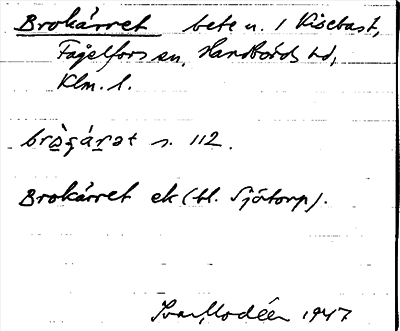 Brokärret bete u. 1 Kisebast,
Fågelfors sn, Handbörds hd,
Klm. l.
brò̲ɕá̲r̲ət s. 112.
Brokärret ek (bl. Sjötorp).
Ivar Modéer 1947